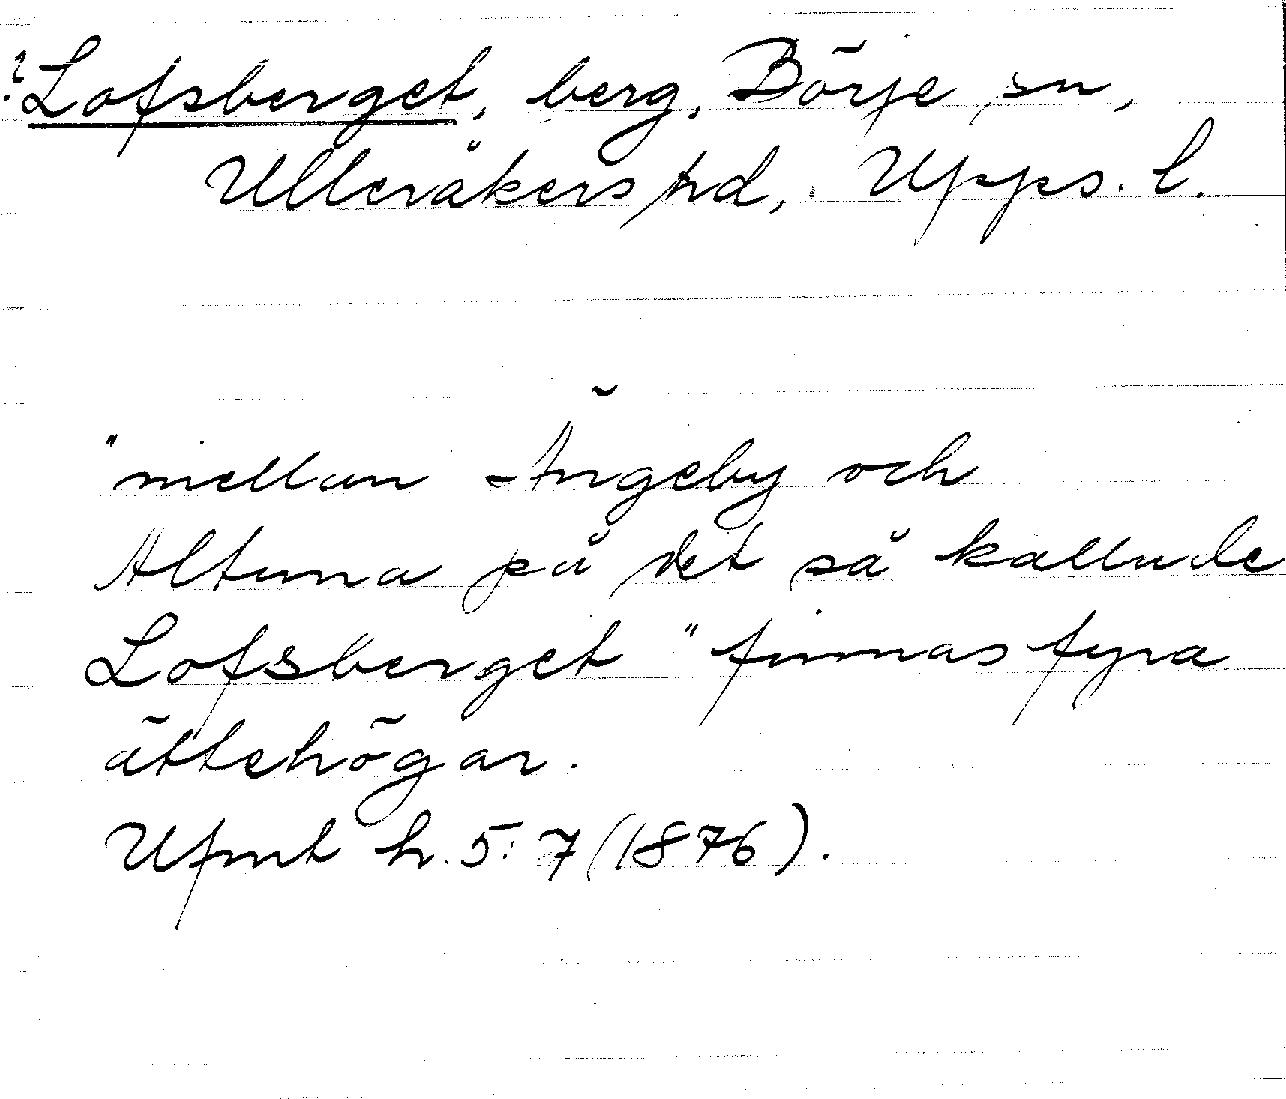 ?Lofsberget, berg, Börje sn,
Ulleråkers hd, Upps. l.
"mellan Ängeby och
Altuna på det så kallade
Lofsberget" finnas fyra
ättehögar.
Ufmt h. 5:7 (1876).